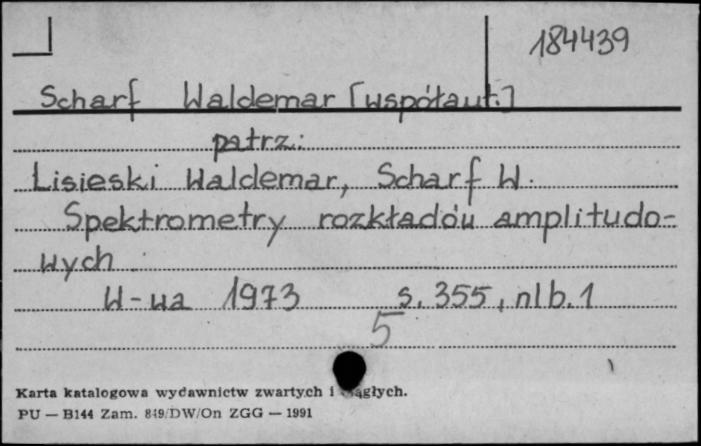 184439
Scharf Waldemar [współaut.]
patrz:
Lisieski Waldemar, Scharf W.
Spektrometry rozkładów amplitudo-
wych.
W-wa 1973 s. 355, nlb. 1
5
Karta katalogowa wydawnictw zwartych i ciągłych.
PU — B144 Zam. 849/DW/On ZGG — 1991